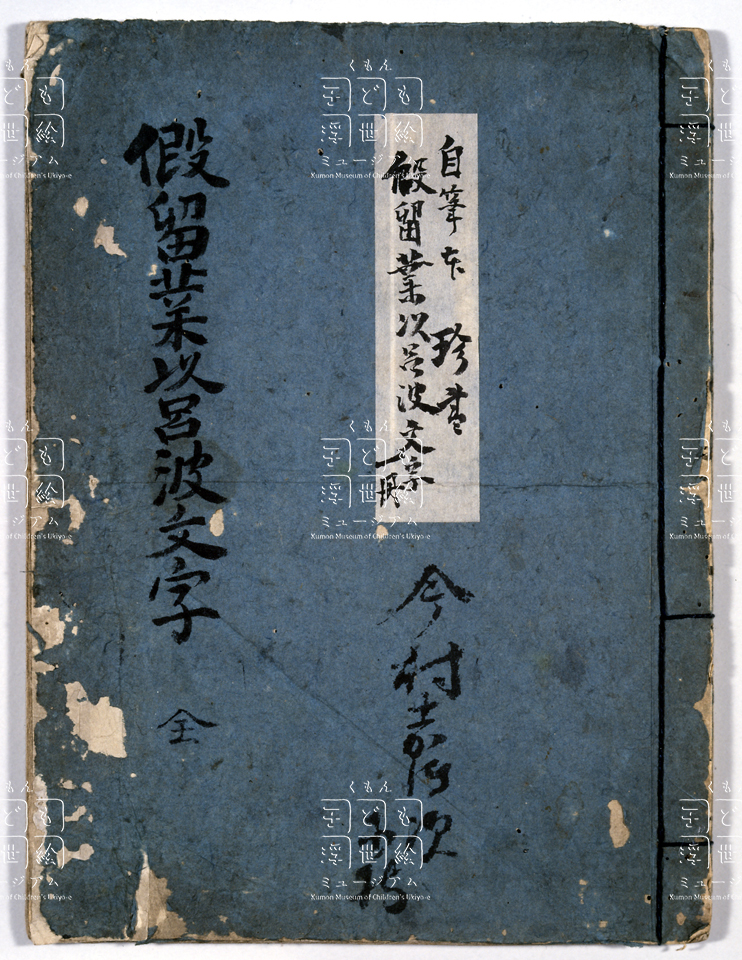 自筆本 珍書
假留葉以呂波文字 一冊
今村
假留葉以呂波文字 全
くもん
子ども
浮世絵
ミュージアム
Kumon Museum of Children's Ukiyo-e